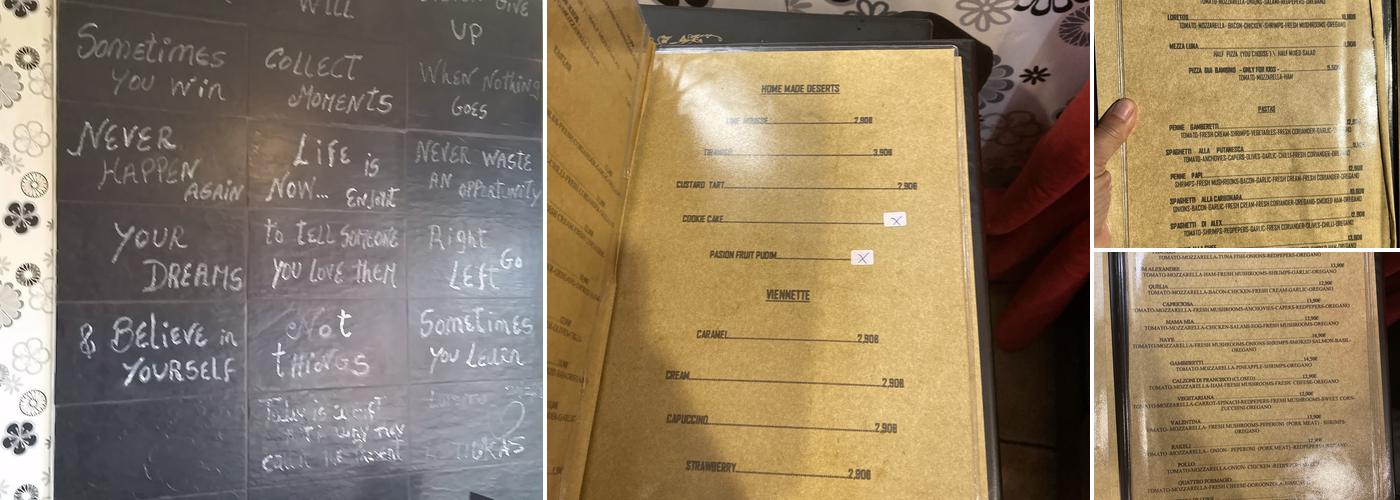 WILL
GIVE
UP
Sometimes
you win
COLLECT
MOMENTS
When Nothing
GOES
NEVER
HAPPEN
AGAIN
Life is
NOW... ENJOY
NEVER WASTE
AN OPPORTUNITY
YOUR
DREAMS
to tell SOMEONE
YOU LOVE tHEM
Right
Go
Left
& BELIEVE in
YOURSELF
Not
tHiNGS
Sometimes
you Learn
Today is a gift
HOME MADE DESERTS
LIME MOUSSE 2,90€
TIRAMISU 3,90€
CUSTARD TART 2,90€
COOKIE CAKE X
PASION FRUIT PUDIM X
VIENNETTE
CARAMEL 2,90€
CREAM 2,90€
CAPUCCINO 2,90€
STRAWBERRY 2,90€
TOMATO-MOZZARELLA-ONIONS-SALAMI-REDPEPERS-OREGANO
LORETOS
TOMATO-MOZZARELLA-BACON-CHICKEN-SHRIMPS-FRESH MUSHROOMS-OREGANO
MEZZA LUNA
HALF PIZZA (YOU CHOOSE) \ HALF MIXED SALAD
PIZZA DUA BAMBINO - ONLY FOR KIDS - 9,50€
TOMATO-MOZZARELLA-HAM
PASTAS
PENNE GAMBERETTI
TOMATO-FRESH CREAM-SHRIMPS-VEGETABLES-FRESH CORIANDER-GARLIC
SPAGHETTI ALLA PUTANESCA
TOMATO-ANCHOVIES-CAPERS-OLIVES-GARLIC-CHILLI-FRESH CORIANDER-OREGANO
PENNE PAPI
SHRIMPS-FRESH MUSHROOMS-BACON-GARLIC-FRESH CREAM-FRESH CORIANDER-OREGANO
SPAGHETTI ALLA CARBONARA
ONIONS-BACON-GARLIC-FRESH CREAM-FRESH CORIANDER-OREGANO-SMOKED HAM-OREGANO
SPAGHETTI DI ALEX
TOMATO-SHRIMPS-REDPEPERS-GARLIC-FRESH CORIANDER-OLIVES-CHILLI-OREGANO
TOMATO-MOZZARELLA-TUNA FISH-ONIONS-REDPEPERS-OREGANO
ALEXANDRE
TOMATO-MOZZARELLA-HAM-FRESH MUSHROOMS-SHRIMPS-GARLIC-OREGANO
QUILIA 12,90€
TOMATO-MOZZARELLA-BACON-CHICKEN-FRESH CREAM-GARLIC-OREGANO
CAPRICIOSA 13,90€
TOMATO-MOZZARELLA-FRESH MUSHROOMS-ANCHOVIES-CAPERS-REDPEPERS-OREGANO
MAMA MIA 12,90€
TOMATO-MOZZARELLA-CHICKEN-SALAMI-EGG-FRESH MUSHROOMS-OREGANO
NAYE
TOMATO-MOZZARELLA-FRESH MUSHROOMS-ONIONS-SHRIMPS-SMOKED SALMON-BASIL-
OREGANO
GAMBERETTI 14,50€
TOMATO-MOZZARELLA-PINEAPPLE-SHRIMPS-OREGANO
CALZONI DI FRANCISCO (CLOSED) 12,90€
TOMATO-MOZZARELLA-HAM-FRESH MUSHROOMS-FRESH CHEESE-OREGANO
VEGETARIANA 12,90€
TOMATO-MOZZARELLA-CARROT-SPINACH-REDPEPERS-FRESH MUSHROOMS-SWEET CORN-
ZUCCHINI-OREGANO
VALENTINA 13,90€
TOMATO-MOZZARELLA- FRESH MUSHROOMS-PEPERONI (PORK MEAT) - SHRIMPS-
OREGANO
RAKELI 12,90€
TOMATO -MOZZARELLA - ONION- PEPERONI (PORK MEAT) -REDPEPERS-OREGANO
POLLO
TOMATO-MOZZARELLA-ONION- CHICKEN -REDPEPERS-OREGANO
QUATTRO FORMAGIO
TOMATO-MOZZARELLA-FRESH CHEESE-GORGONZOLA